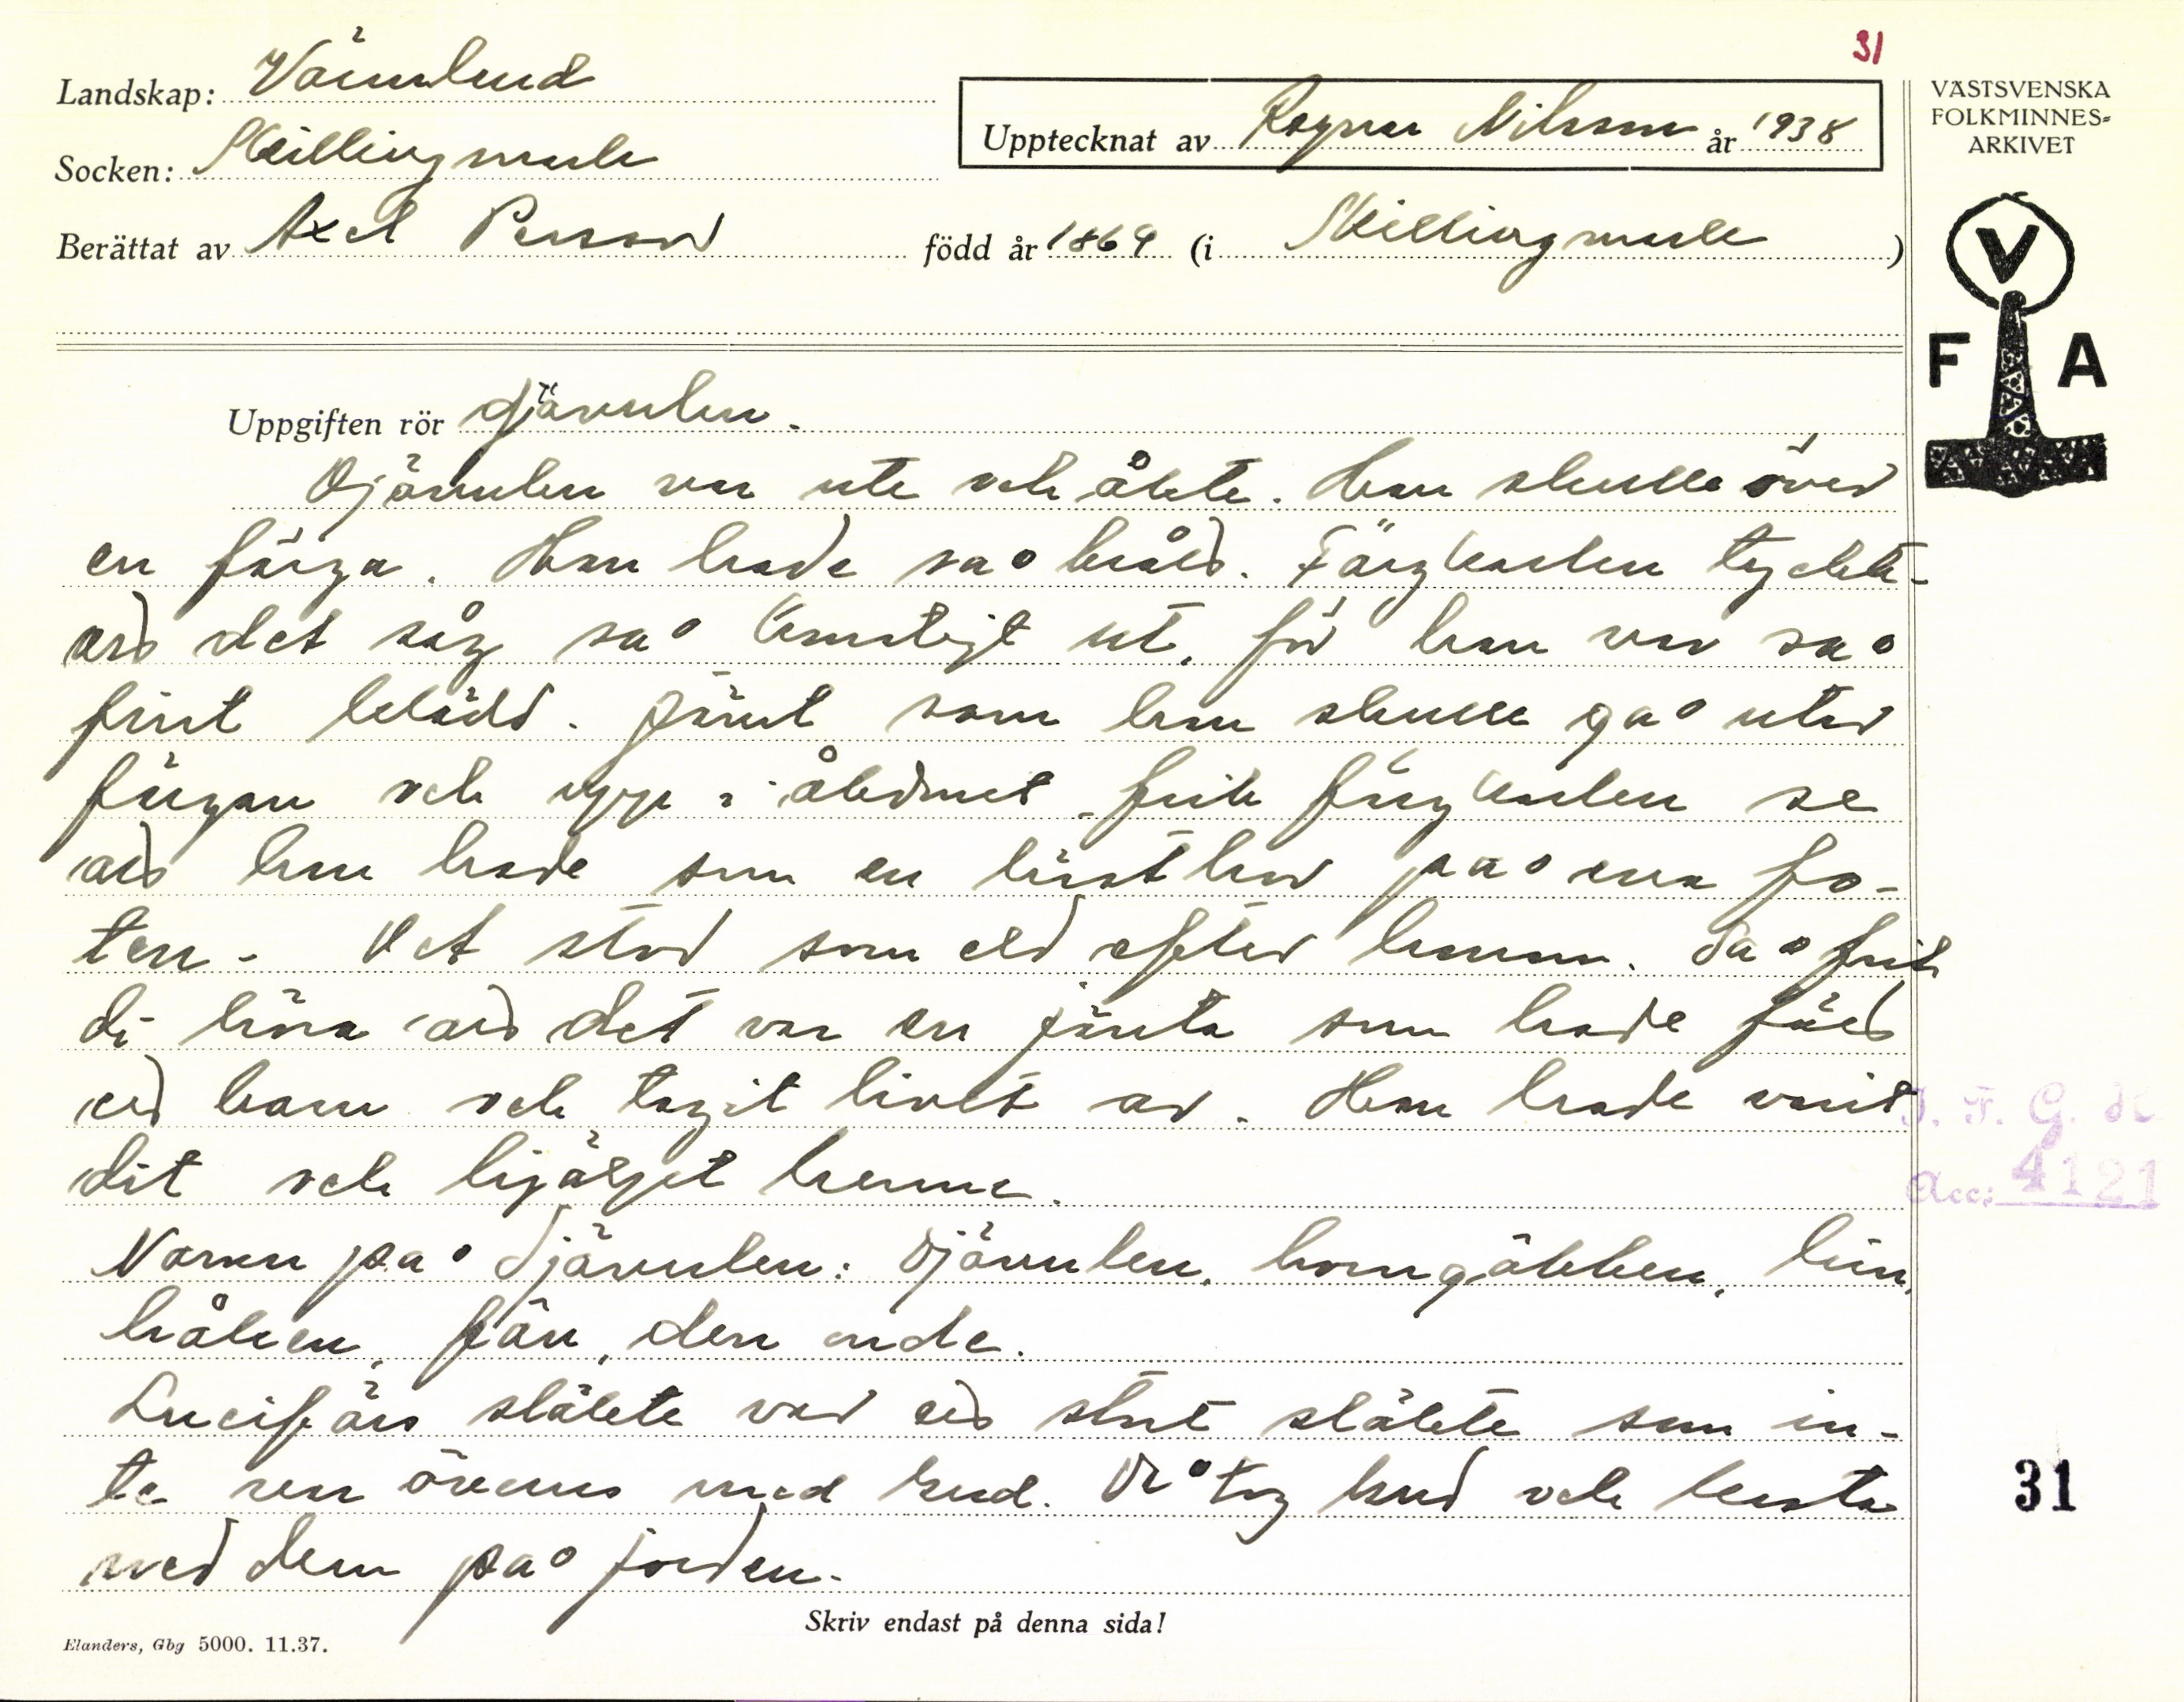 31
Landskap: Värmland
Socken: Skillingmark
Berättat av Axel Persson
Upptecknat av Ragnar Nilsson år 1938
född år 1869 (i Skillingmark)
VÄSTSVENSKA
FOLKMINNES-
ARKIVET
V
F A
Uppgiften rör djävulen.
Djävulen var ute och åkte. Han skulle över
en färga. Han hade så bråd. Färgkarlen tyckt-
es det såg så konstigt ut, för han var så
fint klädd. Jämt som han skulle gå utav
färgan och upp i åkdonet fick färgkarlen se
att han hade som en hästhov på ena fo-
ten. Det stod som eld efter honom. Så fick
di höra att det var en jänta som hade fått
ett barn och tagit livet av. Han hade varit
dit och hjälpt henne.
Namn på djävulen: Djävulen, horngåbben, hin,
håken, fän, den onde.
Lucifärs släkte var ett stort släkte som in-
te var överens med Gud. De tog Gud och kasta
ned dem på jorden.
I. F. G. H
Acc: 4121
31
Skriv endast på denna sida!
Elanders, Gbg 5000. 11.37.